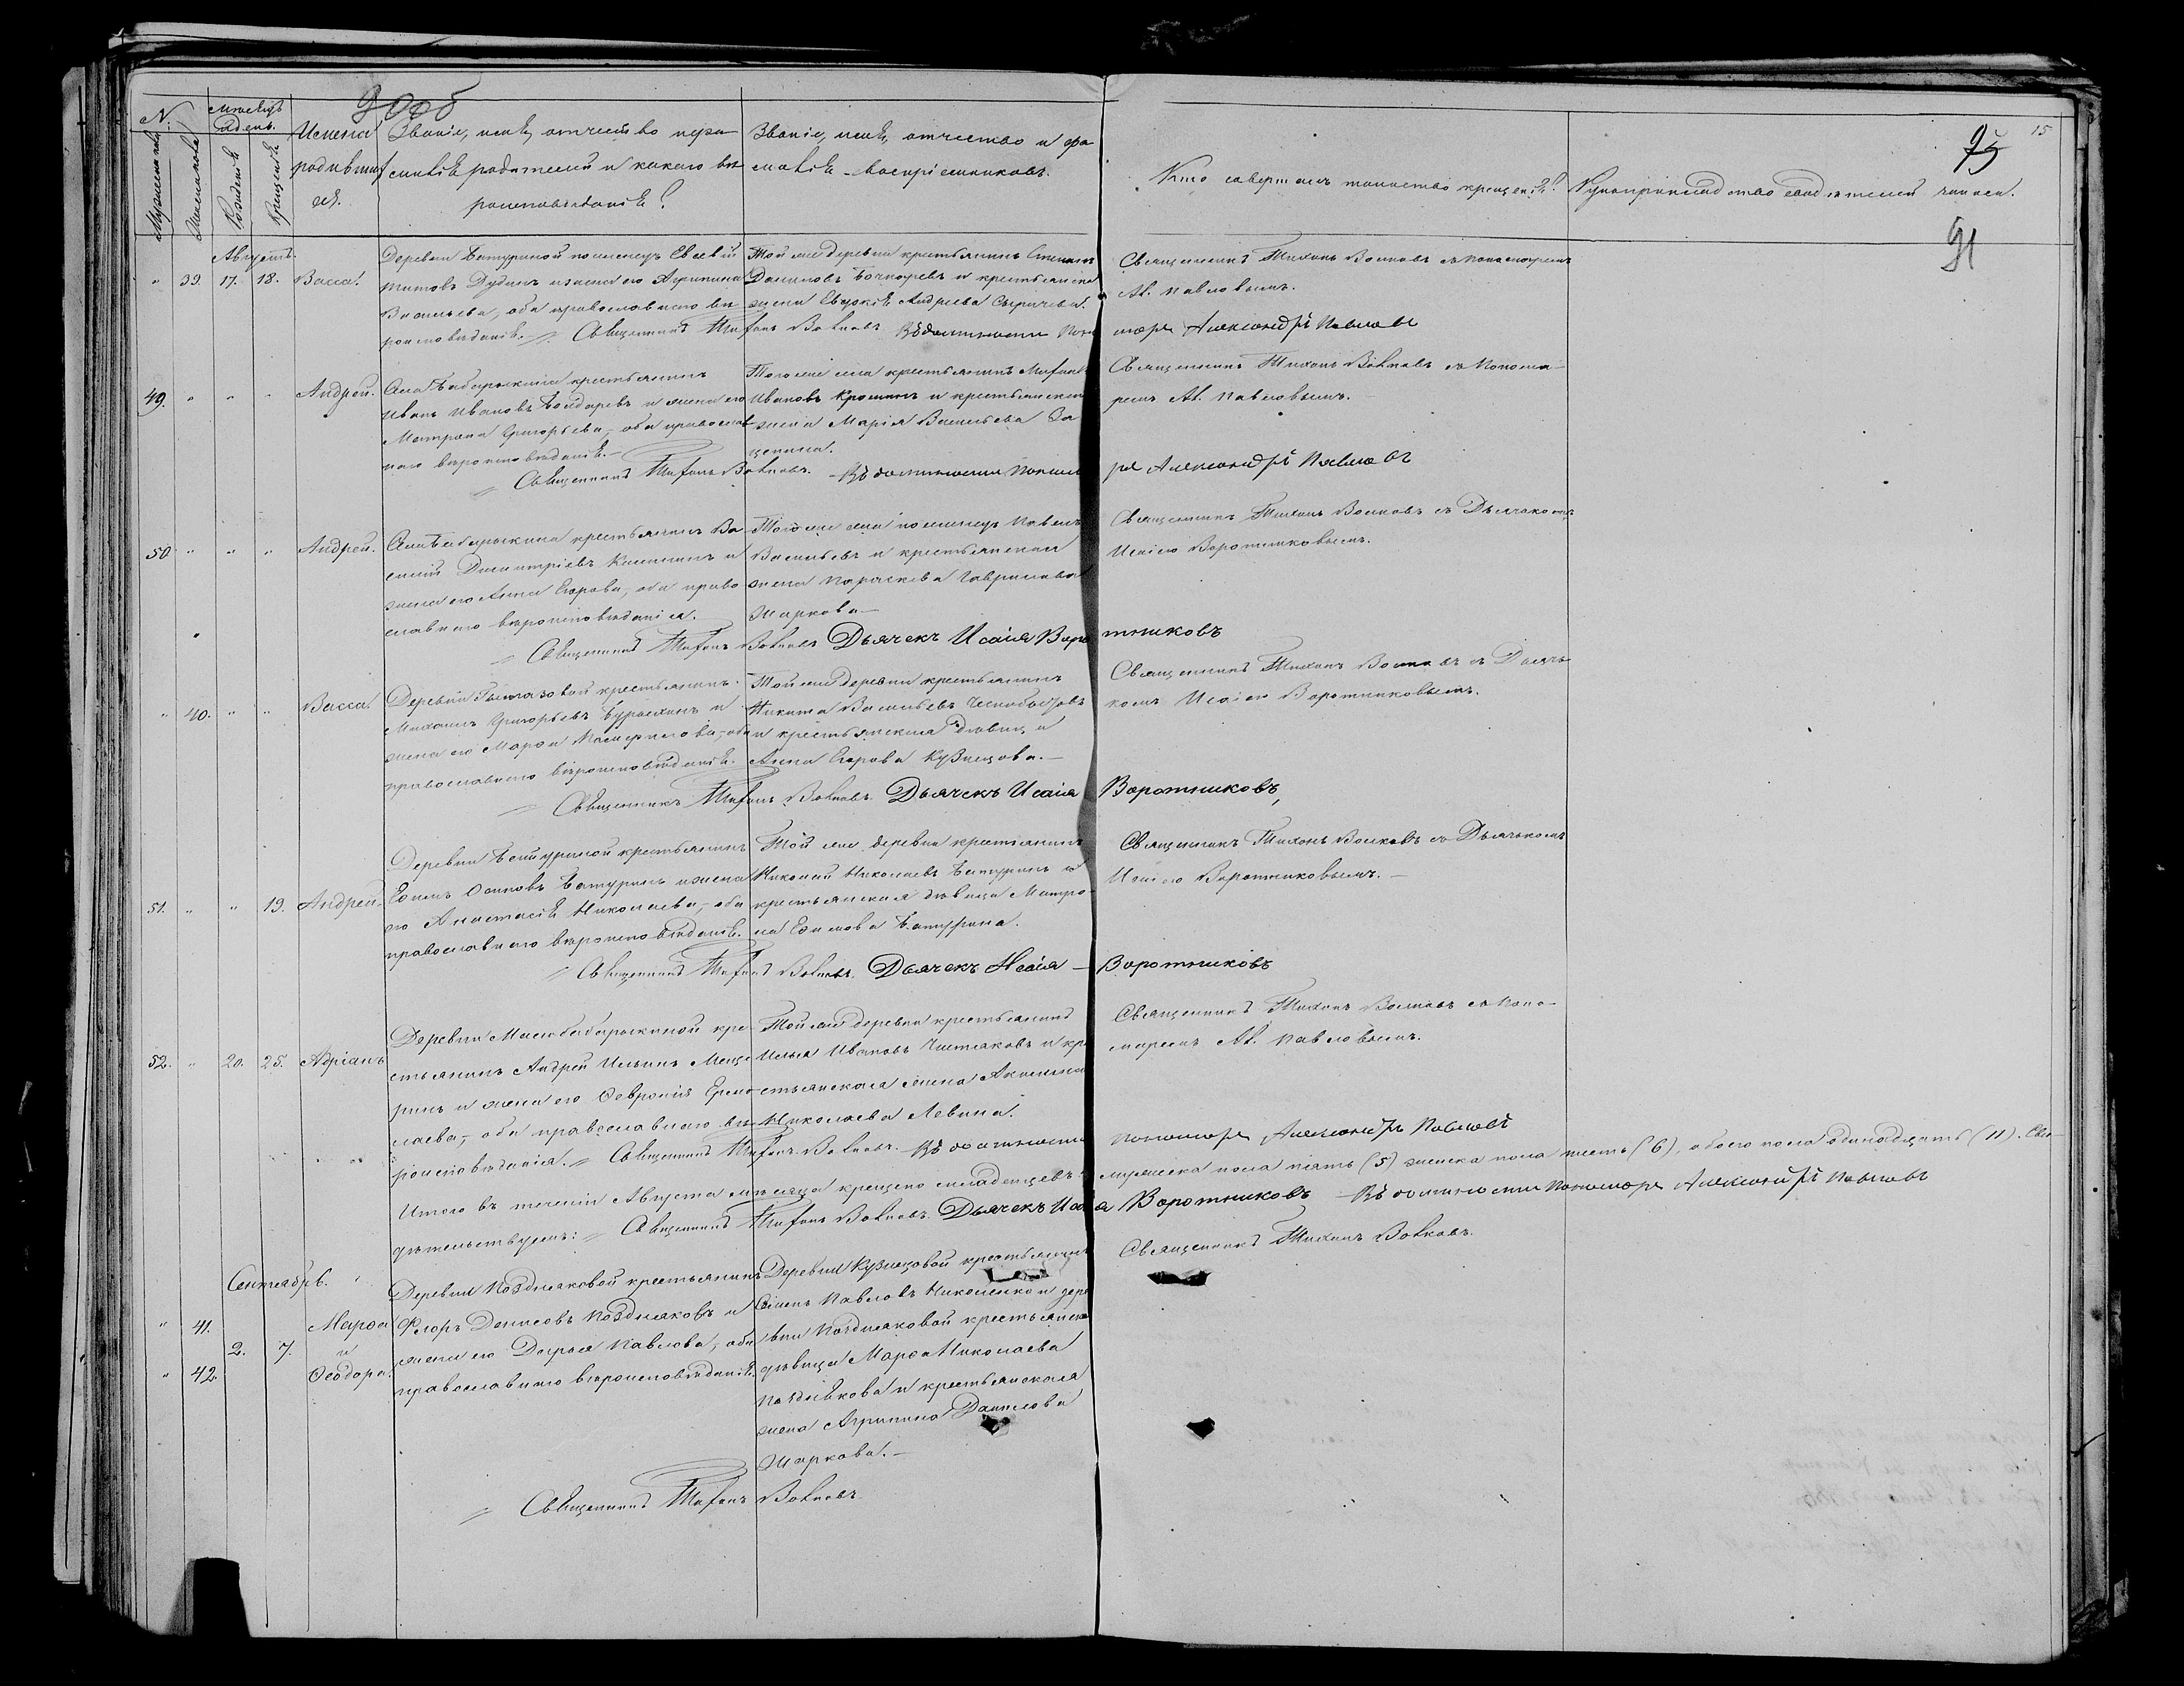 90об
15
75
91
N.
Мѣсяцъ
и день.
Мужеска пола
Женска пола
Рожденія
Крещенія
Имена
родившихся.
Званіе, имя, отчество и фа-
милія родителей и какого вѣ-
роисповѣданія?
Званіе, имя, отчество и фа-
милія воспріемниковъ.
Кто совершалъ таинство крещенія?
Рукоприкладство свидѣтелей записи.
Августъ.
" 39. 17. 18. Васса.
Деревни Батуриной поселенецъ Евсевій
Титовъ Дудинъ и жена его Агрипина
Васильева, оба православнаго вѣ-
роисповѣданія.
Той же деревни крестьянинъ Степанъ
Даниловъ Бочкаревъ и крестьянская
жена Евдокія Андреева Сыричева.
Священникъ Тихонъ Волковъ съ Пономаремъ
Ал. Павловымъ.
Священникъ Тихонъ Волковъ Въ должности Пономаря Александръ Павловъ
49. " " " Андрей.
Села Бабарыкина крестьянинъ
Иванъ Ивановъ Бондаревъ и жена его
Матрона Григорьева, оба православ-
наго вѣроисповѣданія.
Того же села крестьянинъ Михаилъ
Ивановъ Крошинъ и крестьянская
жена Марія Васильева За-
цепина.
Священникъ Тихонъ Волковъ съ Понома-
ремъ Ал. Павловымъ.
Священникъ Тихонъ Волковъ. Въ должности Пономаря Александръ Павловъ
50 " " " Андрей.
Села Бабарыкина крестьянинъ Ва-
силій Димитріевъ Калининъ и
жена его Анна Егорова, оба право-
славнаго вѣроисповѣданія.
Того же села поселенецъ Павелъ
Васильевъ и крестьянская
жена Параскева Гаврилова
Маркова
Священникъ Тихонъ Волковъ съ Дьячкомъ
Исаіею Воротниковымъ.
Священникъ Тихонъ Волковъ Дьячекъ Исаія Воротниковъ
" 40. " " Васса.
Михаилъ Григорьевъ Бурыхинъ и
православнаго вѣроисповѣданія.
Той же деревни крестьянинъ
Никита Васильевъ
и крестьянская дѣвица
Анна Егорова Кузнецова.
Священникъ Тихонъ Волковъ съ Дьяч-
комъ Исаіею Воротниковымъ.
Священникъ Тихонъ Волковъ. Дьячекъ Исаія Воротниковъ,
51. " " 19. Андрей.
Деревни Батуриной крестьянинъ
Ефимъ Осиповъ Батуринъ и жена
его Анастасія Николаева, оба
православнаго вѣроисповѣданія.
Той же деревни крестьянинъ
Николай Николаевъ Батуринъ и
крестьянская дѣвица Матро-
на Ефимова Батурина.
Священникъ Тихонъ Волковъ съ Дьячкомъ
Исаіею Воротниковымъ.
Священникъ Тихонъ Волковъ. Дьячекъ Исаія Воротниковъ
52. " 20. 25. Адріанъ
Деревни Малобабарыкиной кре-
стьянинъ Андрей Ильинъ Меще-
ринъ и жена его Февронія Ермо-
лаева, оба православнаго вѣ-
роисповѣданія.
Той же деревни крестьянинъ
Илья Ивановъ Чистяковъ и кре-
стьянская жена Акилина
Николаева Левина.
Священникъ Тихонъ Волковъ съ Поно-
маремъ Ал. Павловымъ.
Священникъ Тихонъ Волковъ. Въ должности Пономаря Александръ Павловъ
Итого въ теченіи Августа мѣсяца крещено младенцевъ мужеска пола пять (5) женска пола шесть (6), обоего пола одинадцать (11). Сви-
дѣтельствуемъ: Священникъ Тихонъ Волковъ. Дьячекъ Исаія Воротниковъ Въ должности Пономаря Александръ Павловъ
Сентябрь.
" 41. Марѳа
2. 7. и
" 42. Ѳеодора.
Деревни Поздняковой крестьянинъ
Флоръ Денисовъ Поздняковъ и
жена его Дарья Павлова, оба
православнаго вѣроисповѣданія.
Деревни Кузнецовой крестьянинъ
Павловъ и дере-
вни Поздняковой крестьянская
дѣвица Марѳа Николаева
Позднякова и крестьянская
жена Агрипина Данилова
Маркова.
Священникъ Тихонъ Волковъ.
Священникъ Тихонъ Волковъ